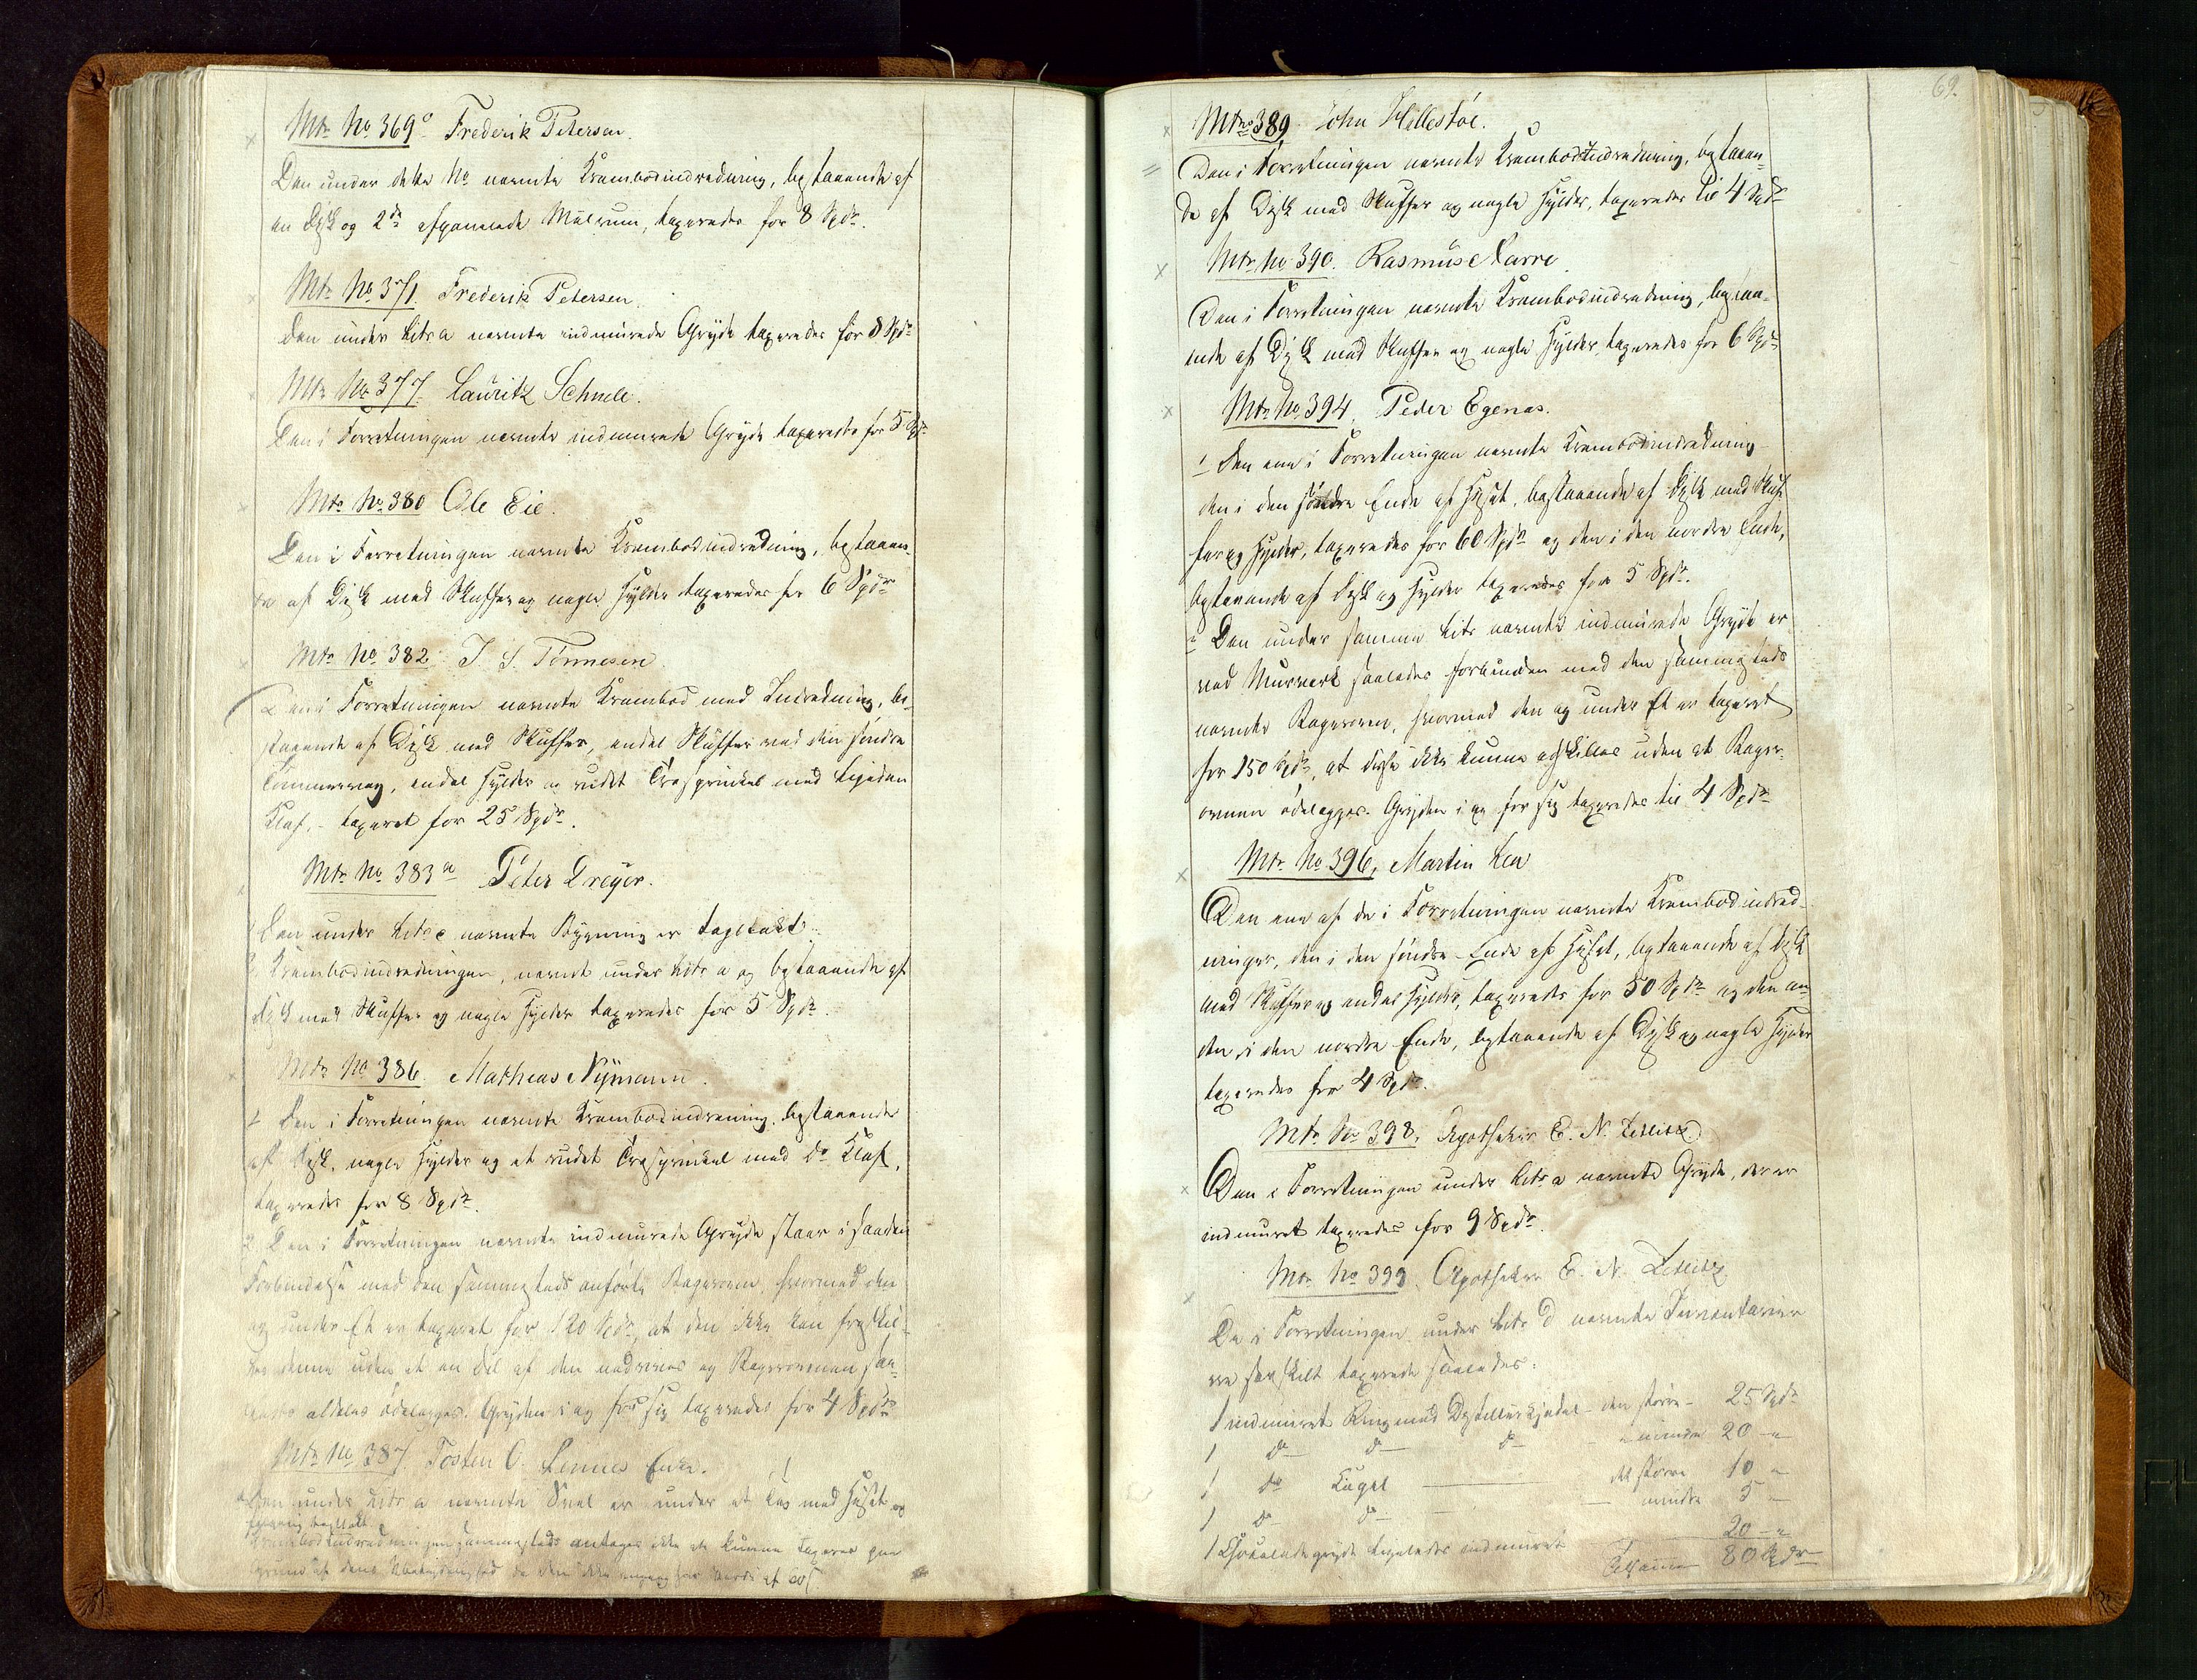 Mtr No 369c Frederik Petersen.
Den under dette No nævnte Krambodindredning, bestaaende af
en Disk og 2de afpanelede Mælrum, taxeredes for 8 Spdr.
Mtr No 371. Frederik Petersen.
Den under Litr a nævnte indmurede Gryde taxeredes for 8 Spdr
Mtr No 377. Lauritz Schnell.
Den i Forretningen nævnte indmurede Gryde taxeredes for 5 Spdr
Mtr No 380 Ole Eie.
Den i Forretningen nævnte Krambodindredning, bestaaen-
de af Disk med Skuffer og nogle Hylder taxeredes for 6 Spdr
Mtr No 382. J. S. Tønnesen.
Den i Forretningen nævnte Krambod med Indredning, be-
staaende af Disk med Skuffer, endel Skuffer ved den søndre
Tømmervæg, endel Hylder og rudet Træsprinkel med ligedan
Klaf, - taxeret for 25 Spdr.
Mtr No 383a Peter Dreyer.
1. Den under Litr c nævnte Bygning er tegltækt.
2. Krambodindredningen, nævnt under Litr a og bestaaende af
Disk med Skuffer og nogle Hylder taxeredes for 5 Spdr.
Mtr No 386. Mathias Nymann.
1 Den i Forretningen nævnte Krambodindredning, bestaaende
af Disk, nogle Hylder og et rudet Træsprinkel med do Klaf,
taxeredes for 8 Spdr.
2. Den i Forretningen nævnte indmurede Gryde staar i saadan
Forbindelse med den sammesteds anførte Bagerovn, hvormed den
og under Et er taxeret for 120 Spdr, at den ikke kan fraskil-
les denne uden at en Del af den nedrives og Bagerovnen saa-
ledes aldeles ødelægges. Gryden i og for sig taxeredes for 4 Spdr
Mtr No 387. Tosten O. Lennes Enke.
Den under Litr a nævnte Sval er under et Tag med Huset og
forøvrig tegltækt.
Krambodindredningen sammesteds antages ikke at kunne taxeres paa
Grund af dens Ubetydelighed da den ikke engang har Værdi af
69.
Mtr No 389. John Hillestøe.
Den i Forretningen nævnte Krambodindredning, bestaaen-
de af Disk med Skuffer og nogle Hylder, taxeredes til 4 Spdr
Mtr No 390. Rasmus Narre
Den i Forretningen nævnte Krambodindredning, bestaa-
ende af Disk med Skuffer og nogle Hylder, taxeredes for 6 Spdr
Mtr No 394. Peder Egenæs.
1 Den ene i Forretningen nævnte Krambodindredning
den i den søndre Ende af Huset, bestaaende af Disk med Skuf-
fer og Hylder, taxeredes for 60 Spdr og den i den nordre Ende,
bestaaende af Disk og Hylder taxeredes for 5 Spdr.
2 Den under samme Litr nævnte indmurede Gryde er
ved Murværk saaledes forbunden med den sammesteds
nævnte Bagerovn, hvormed den og under Et er taxeret
for 150 Spdr, at disse ikke kunne adskilles uden at Bager-
ovnen ødelægges. Gryden i og for sig taxeredes til 4 Spdr
Mtr No 396. Martin Lea
Den ene af de i Forretningen nævnte Krambodindred-
ninger, den i den søndre Ende af Huset, bestaaende af Disk
med Skuffer og endel Hylder, taxeredes for 50 Spdr og den an-
den, i den nordre Ende, bestaaende af Disk og nogle Hylder
taxeredes for 4 Spdr.
Mtr No 398. Apotheker E. N. Zetlitz.
Den i Forretningen under Litr a nævnte Gryde, der er
indmuret taxeredes for 9 Spdr.
Mtr No 399. Apotheker E. N. Zetlitz
De i Forretningen under Litr d nævnte Inventarier
ere særskilt taxerede saaledes:
1 indmuret med Destilleerkjedel - den større - 25 Spdr
1 do do do - mindre 20 -
1 do Kugel det større 10 -
1 do do mindre 5 -
1 Chokoladegryde ligeledes indmuret 20 -
Tilsammen 80 Spdr